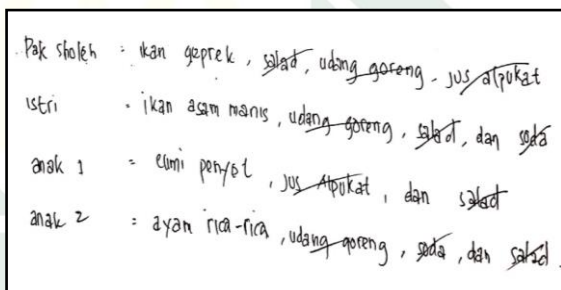 Pak sholeh : ikan geprek, salad, udang goreng, jus alpukat
istri : ikan asam manis, udang goreng, salad, dan soda
anak 1 : cumi penyet, jus Alpukat, dan salad
anak 2 : ayam rica-rica, udang goreng, soda, dan salad.